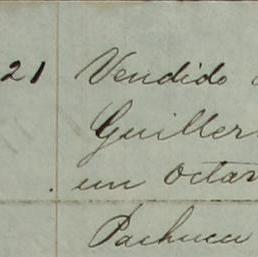 21 Vendido a
Guiller
un Octav
Pachuca